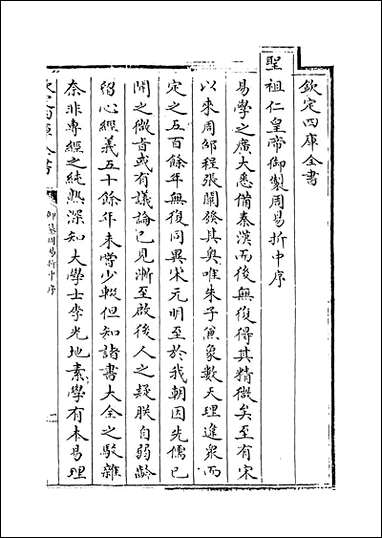 欽定四庫全書
聖祖仁皇帝御製周易折中序
易學之廣大悉備秦漢而後無復得其精微矣至有宋
以來周邵程張闡發其奧唯朱子兼象數天理違衆而
定之五百餘年無復同異宋元明至於我朝因先儒已
開之微㫖或有議論已見漸至啟後人之疑朕自弱齡
留心經義五十餘年未嘗少輟但知諸書大全之駁雜
奈非專經之純熟深知大學士李光地素學有本易理
御纂周易折中序
一